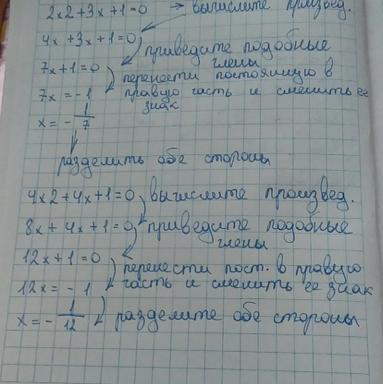 2x2+3x+1=0 → вычислите произвед.
4x+3x+1=0
приведите подобные
члены
7x+1=0
перенести постоянную в
7x=-1 правую часть и сменить ее
знак
x=-1/7
разделить обе стороны
4x2+4x+1=0 вычислите произвед.
8x+4x+1=0 приведите подобные
члены
12x+1=0
перенести пост. в правую
12x=-1 часть и сменить ее знак
x=-1/12 разделите обе стороны